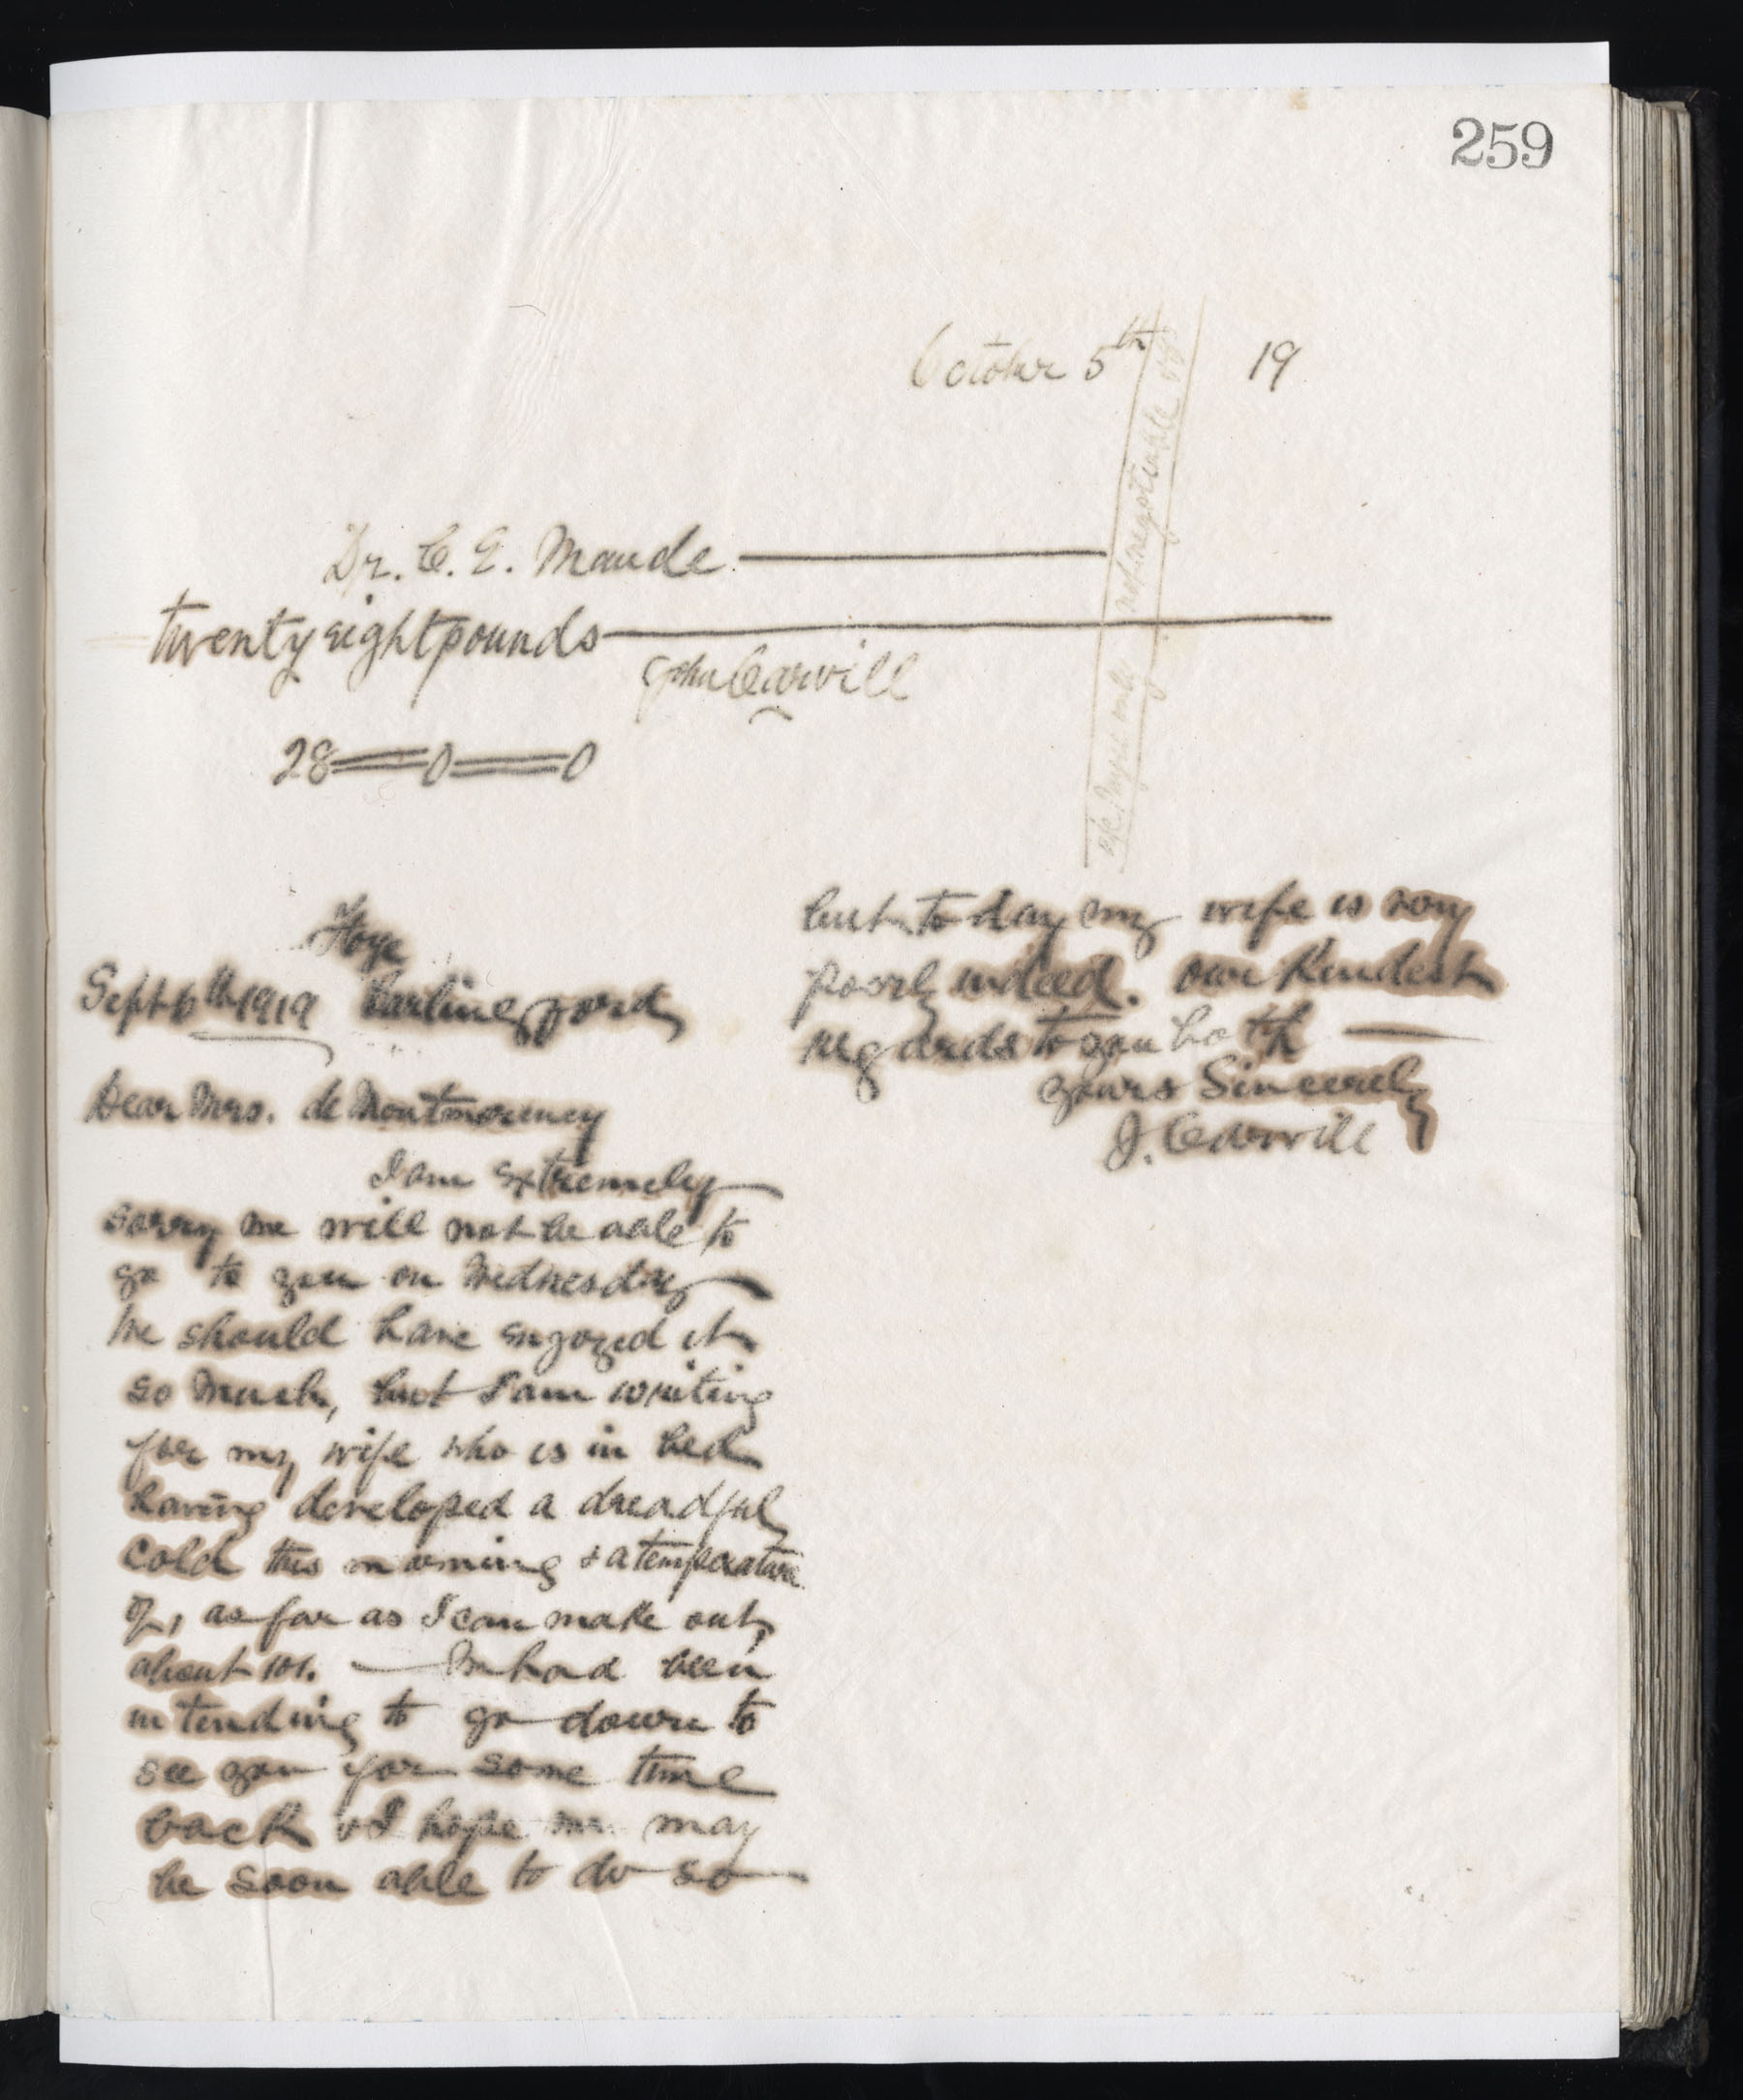 259
October 5th 19
Dr. C. E. Maude
twenty eight pounds
John Carvill
28 = 0 = 0
a/c Payee only not negotiable
Sept 6th 1919 Carlingford
Dear Mrs. de Montmorency
I am extremely
sorry we will not be able to
go to you on Wednesday
We should have enjoyed it
so much, but I am writing
for my wife who is in bed
having developed a dreadful
cold this morning & a temperature
of, as far as I can make out,
about 101. — We had been
intending to go down to
see you for some time
back & I hope we may
be soon able to do so
but to day my wife is very
poorly indeed. Our Kindest
regards to you both —
yours Sincerely
J. Carvill